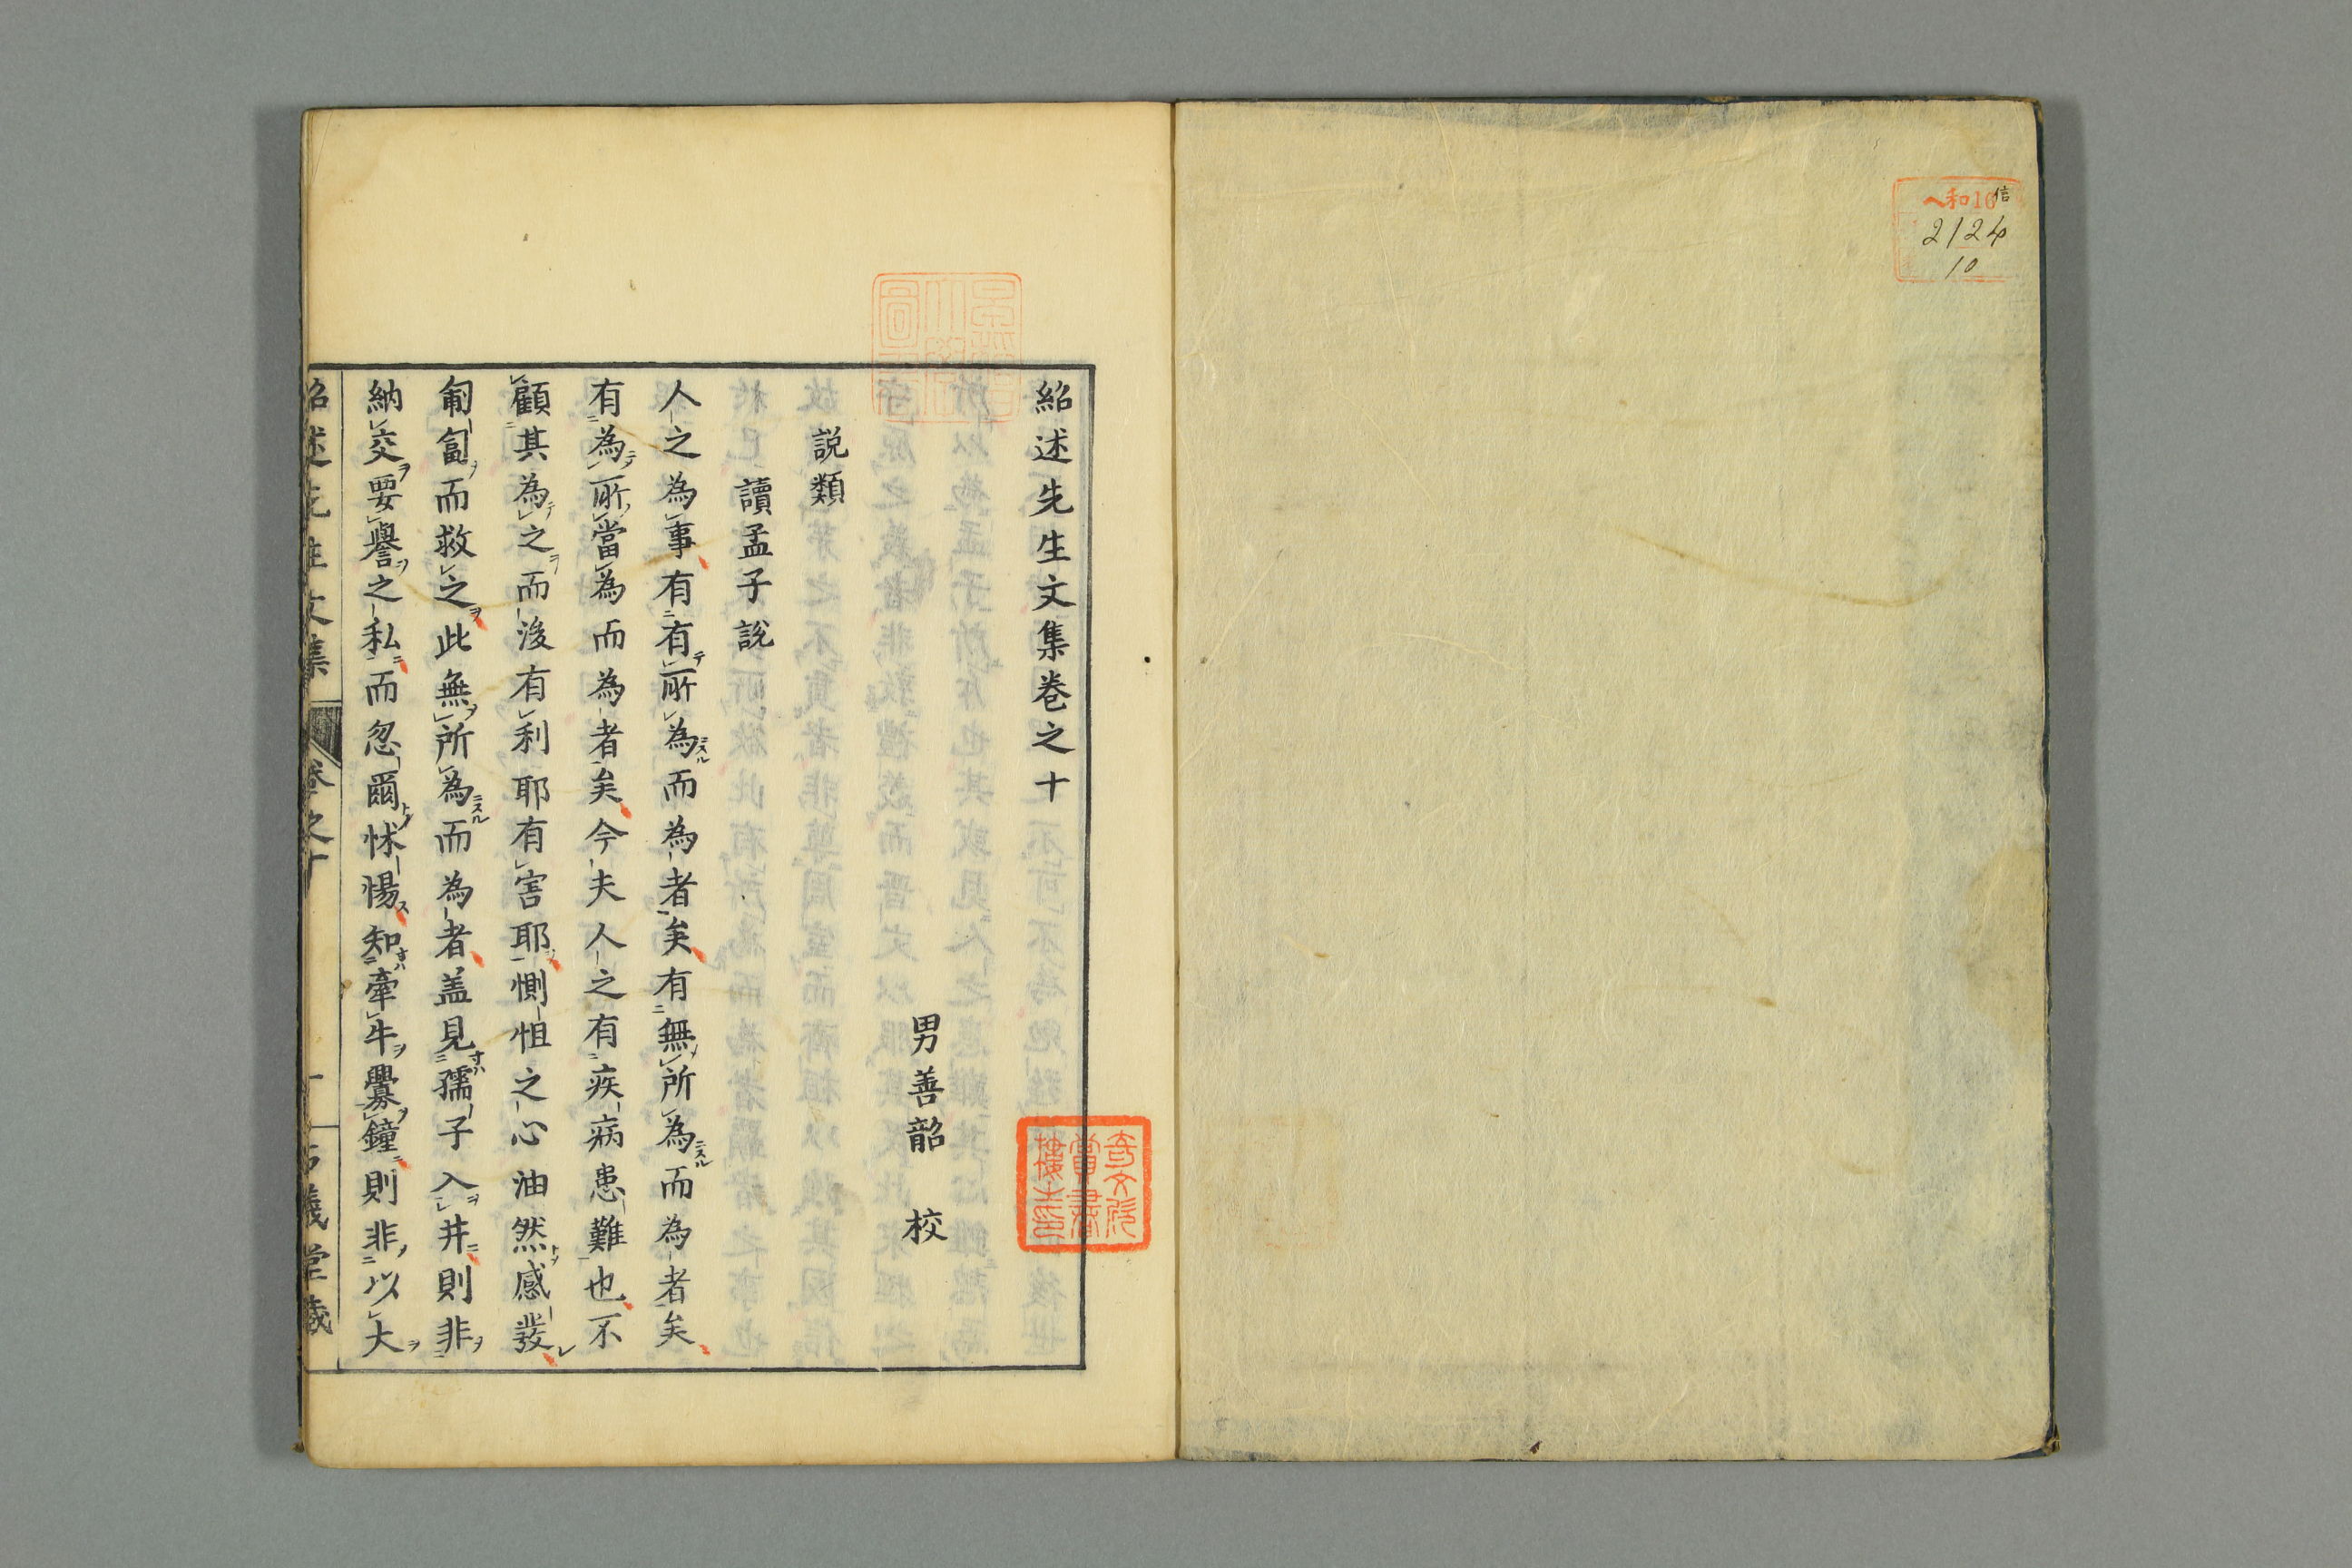 ヘ和16 信
2124
10
紹述先生文集卷之十
男善韶 校
説類
讀孟子説
人之為事有有所為而為者矣有無所為而為者矣
有為所當為而為者矣今夫人之有疾病患難也不
顧其為之而後有利耶有害耶惻怛之心油然感發
匍匐而救之此無所為而為者盖見孺子入井則非
納交要譽之私而忽爾怵惕知牽牛釁鐘則非以大
紹述先生文集 卷之十 一 古義堂藏
奇文欣賞書樓主印